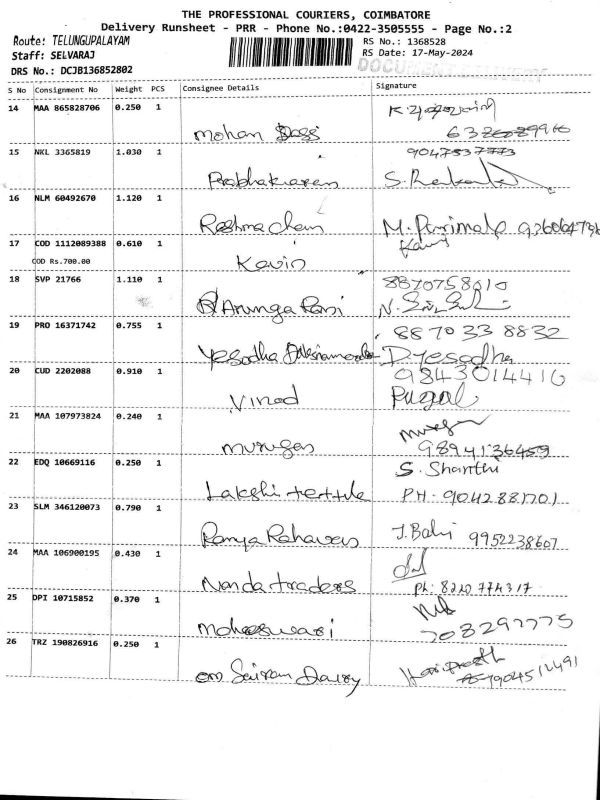 THE PROFESSIONAL COURIERS, COIMBATORE
Delivery Runsheet - PRR - Phone No.:0422-3505555 - Page No.:2
Route: TELUNGUPALAYAM
RS No.: 1368528
Staff: SELVARAJ
RS Date: 17-May-2024
DRS No.: DCJB136852802
S No Consignment No Weight PCS Consignee Details Signature
14 MAA 865828706 0.250 1
Mohan
15 NKL 3365819 1.030 1 9047537773
Prabhakaran S.
16 NLM 60492670 1.120 1
Reshma chem M. Parimala
17 COD 1112089388 0.610 1
COD Rs.700.00 Kavin
18 SVP 21766 1.110 1 8870758010
Arunga Rani N.
19 PRO 16371742 0.755 1 88 70 33 8832
Yesodha D yesodha
20 CUD 2202088 0.910 1 9843014416
Vinod Pugal
21 MAA 107973824 0.240 1
murugan 9894136459
22 EDQ 10669116 0.250 1 S. Shanthi
Lakshi textile PH: 9042881701
23 SLM 346120073 0.790 1
Ramya J. Babu 9952238607
24 MAA 106900195 0.430 1
Nanda traders Ph: 8220774317
25 DPI 10715852 0.370 1
maheeswari 708297775
26 TRZ 190826916 0.250 1
om Sairam Dairy